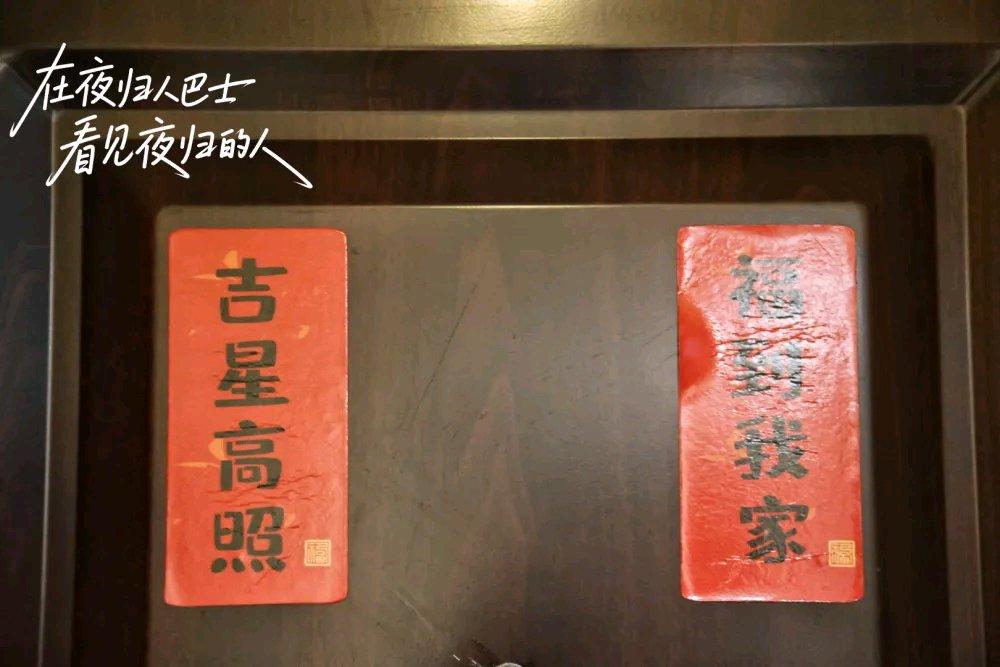 在夜归人巴士
看见夜归的人
吉星高照
福到我家